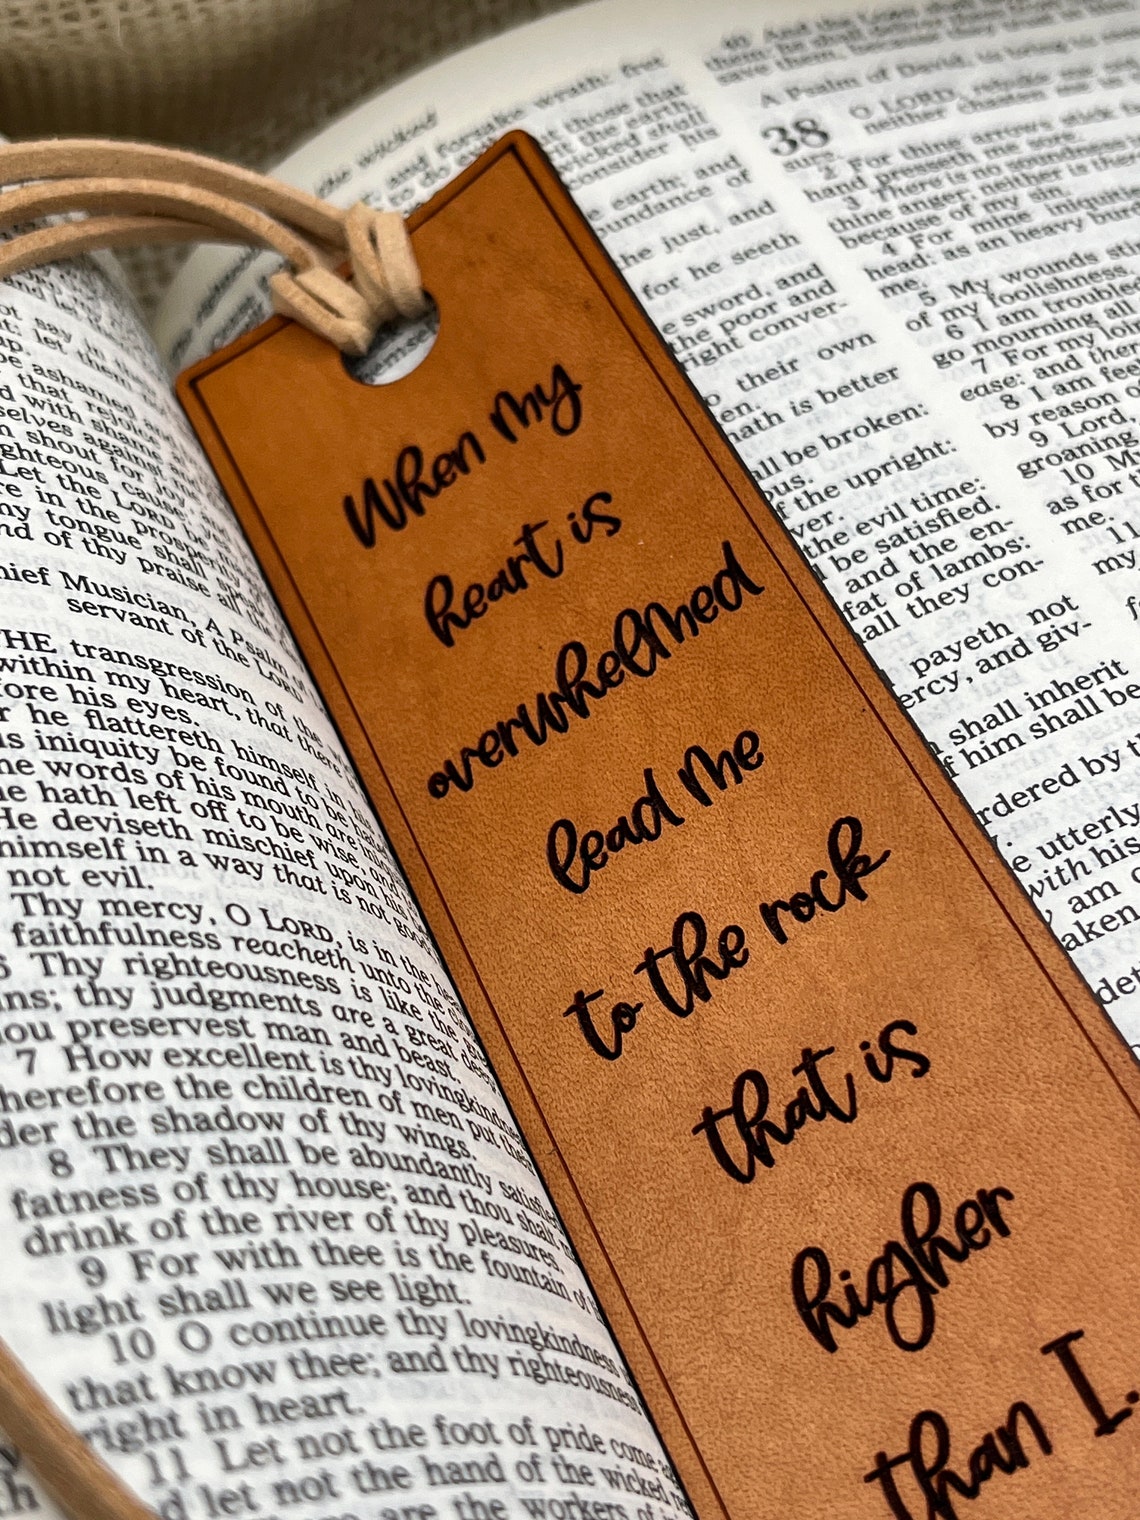 When my
heart is
overwhelmed
lead me
to the rock
that is
higher
than I.
the wicked
and forsake wrath: fret
to do
those that
the earth.
wicked shall
consider his
earth; and
abundance of
the just, and
for he seeth
sword, and
the poor and
right conver-
their own
better
be broken:
the upright:
the evil time:
be satisfied.
and the en-
fat of lambs:
all they con-
payeth not
mercy, and giv-
shall inherit
him shall be
utterly
with his
am
A Psalm of David, to bring to
38 O LORD, rebuke me
neither chasten me
2 For thine arrows stick
hand presseth me sore.
3 There is no soundness
thine anger; neither is
because of my sin.
4 For mine iniquities
head: as an heavy
me.
5 My wounds
of my foolishness.
6 I am troubled;
go mourning all
7 For my
ease: and there
8 I am
by reason of
9 Lord,
groaning
10 My
as for
me.
11
my
not say
let them
be ashamed
that rejoice
with shame
selves against
shout for joy
righteous cause
Let the LORD be
in the prosperity
my tongue shall
and of thy praise all the
chief Musician, A Psalm of
servant of the LORD
THE transgression of the
within my heart, that there
fore his eyes.
he flattereth himself in
his iniquity be found to be
The words of his mouth are
he hath left off to be wise, and
He deviseth mischief upon his
himself in a way that is not good
not evil.
Thy mercy, O LORD, is in the
faithfulness reacheth unto the
6 Thy righteousness is like the
thy judgments are a great deep
thou preservest man and beast.
7 How excellent is thy lovingkindness
therefore the children of men put their
der the shadow of thy wings.
8 They shall be abundantly satisfied
fatness of thy house; and thou shalt
drink of the river of thy pleasures.
9 For with thee is the fountain of
light shall we see light.
10 O continue thy lovingkindness
that know thee; and thy righteousness
right in heart.
11 Let not the foot of pride come
let not the hand of the wicked
are the workers of